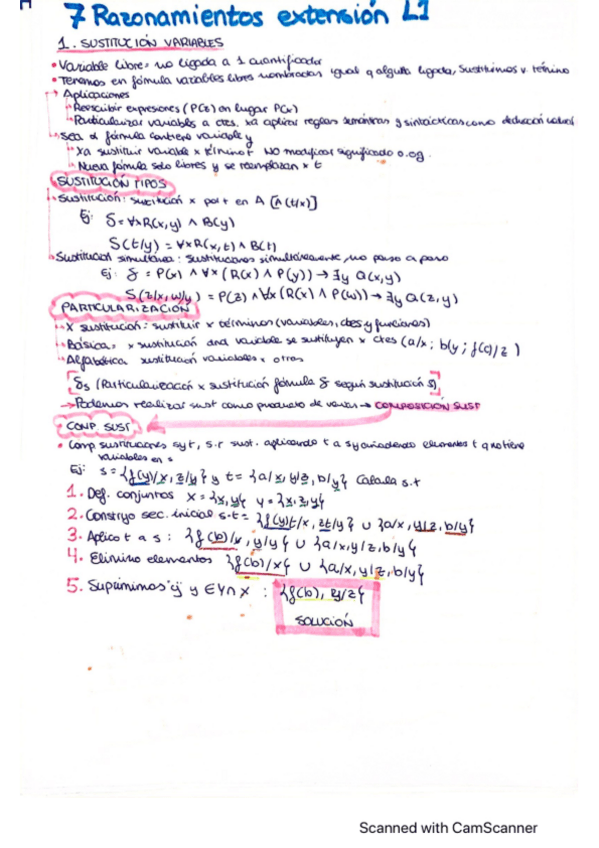 7 Razonamientos extensión L1
1. SUSTITUCIÓN VARIABLES
• Variable libre = no ligada a 1 cuantificador
• Tenemos en fórmula variables libres nombradas igual q alguna ligada, sustituimos v. término
→ Aplicaciones
Reescribir expresiones (P(z) en lugar P(x)
Particularizar variables a ctes. xa aplicar reglas semánticas y sintácticas como deducción natural
Sea α fórmula contiene variable y
Xa sustituir variable x término t NO modificar significado o.og.
Nueva fórmula solo libres y se reemplazan x t
SUSTITUCIÓN TIPOS
Sustitución: sustitución x por t en A [A(t/x)]
Ej: δ = ∀x R(x,y) ∧ B(y)
S(t/y) = ∀x R(x,t) ∧ B(t)
Sustitución simultánea: Sustituciones simultáneamente, no paso a paso
Ej: δ = P(x) ∧ ∀x (R(x) ∧ P(y)) → ∃y Q(x,y)
S(z/x, w/y) = P(z) ∧ ∀x (R(x) ∧ P(w)) → ∃y Q(z,y)
PARTICULARIZACIÓN
X sustitución: sustituir x términos (variables, ctes y funciones)
Básica = x sustitución una variable se sustituyen x ctes (a/x; b/y; f(c)/z)
Alfabética sustitución variables x otras
[δs (Particularización x sustitución fórmula δ según sustitución s)]
→ Podemos realizar sust como producto de varias → COMPOSICIÓN SUST
COMP. SUST
• Comp sustituciones s y t, s.t sust. aplicando t a s y añadiendo elementos t q no tiene
variables en s
Ej: s = {f(y)/x, z/y} y t = {a/x, y/z, b/y} Calcula s.t
1. Def. conjuntos X = {x, y} Y = {x, z, y}
2. Construyo sec. inicial s.t = {f(y)t/x, zt/y} ∪ {a/x, y/z, b/y}
3. Aplico t a s: {f(b)/x, y/y} ∪ {a/x, y/z, b/y}
4. Elimino elementos {f(b)/x} ∪ {a/x, y/z, b/y}
5. Suprimimos ej y ∈ Y∩X : {f(b), y/z}
SOLUCIÓN
Scanned with CamScanner